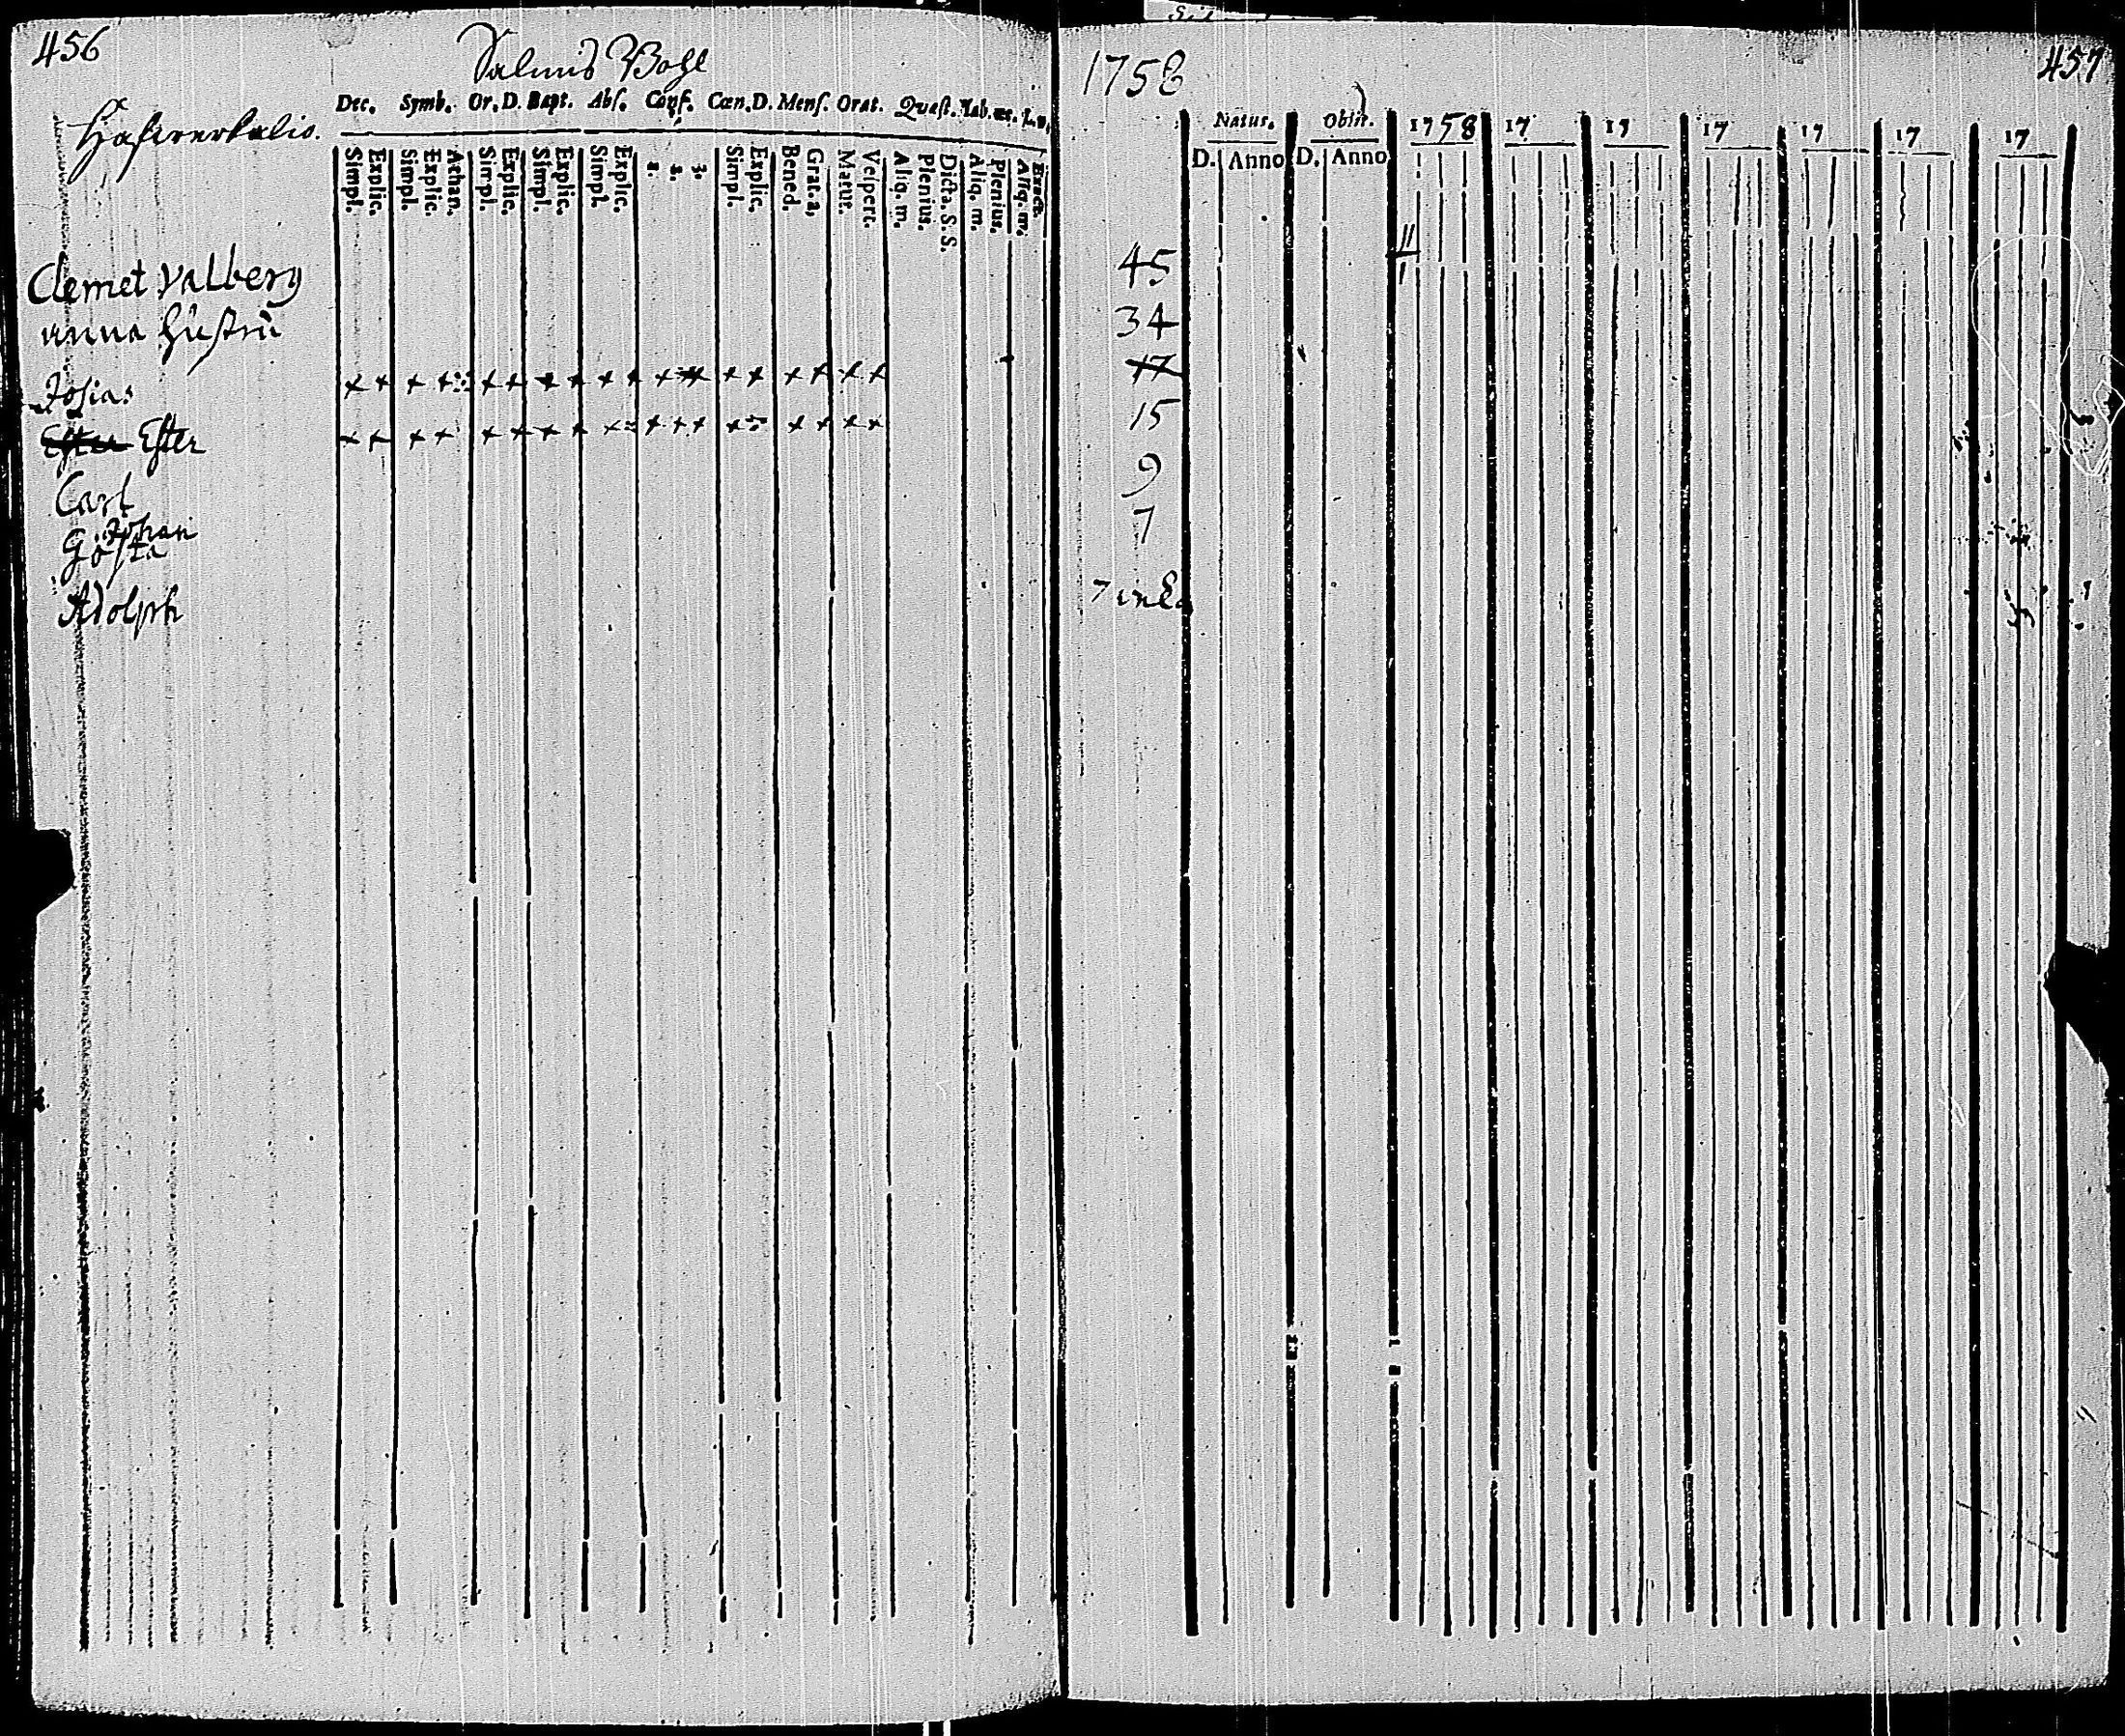 456
Salmis Bohl
Dec. Symb. Or. D. Bapt. Abs. Conf. Cœn. D. Mens. Orat. Quæst. Tab. œc.
Simpl. Explic. Simpl. Explic. Athan. Simpl. Explic. Simpl. Explic. Simpl. Explic. 1. 2. 3. Simpl. Explic. Bened. Grat. a. Matut. Vespert. Aliq. m. Plenius. Dicta. S. S. Aliq. m. Plenius. Aliq. m.
Clemet Valberg
anna hustru
Josias
Ester Ester
Carl
Johan
Gösta
Adolph
1758
457
Natus. Obiit. 1758 17 17 17 17 17 17
D. Anno D. Anno
45
34
17
15
9
7